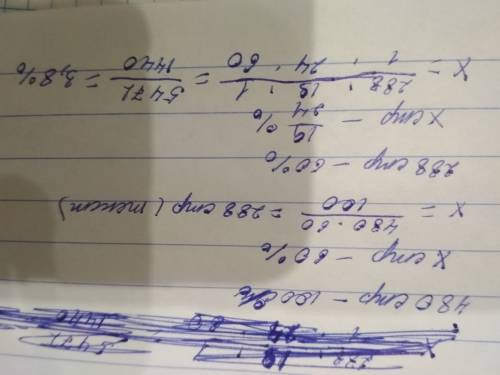 480 стр – 100%
x стр – 60%
x = 480 · 60 / 100 = 288 стр (текст)
288 стр – 60%
x стр – 19/24 %
x = 288 · 19 · 1 / 1 · 24 · 60 = 5472 / 1440 = 3,8%